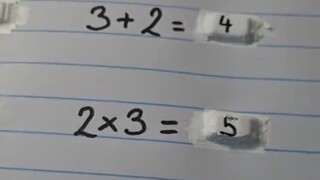 3+2 = 4
2×3 = 5